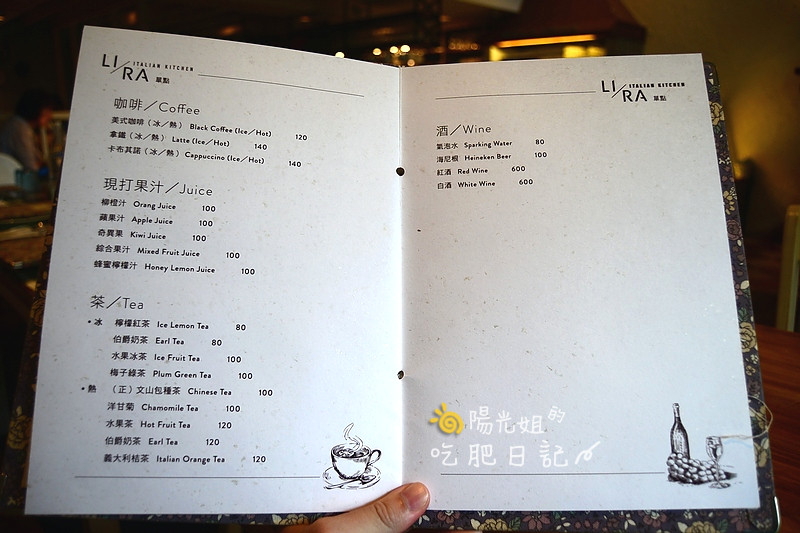 LI/RA ITALIAN KITCHEN 單點
咖啡／Coffee
美式咖啡（冰／熱） Black Coffee (Ice／Hot) 120
拿鐵（冰／熱） Latte (Ice／Hot) 140
卡布其諾（冰／熱） Cappuccino (Ice／Hot) 140
現打果汁／Juice
柳橙汁 Orang Juice 100
蘋果汁 Apple Juice 100
奇異果 Kiwi Juice 100
綜合果汁 Mixed Fruit Juice 100
蜂蜜檸檬汁 Honey Lemon Juice 100
茶／Tea
•冰 檸檬紅茶 Ice Lemon Tea 80
伯爵奶茶 Earl Tea 80
水果冰茶 Ice Fruit Tea 100
梅子綠茶 Plum Green Tea 100
•熱 （正）文山包種茶 Chinese Tea 100
洋甘菊 Chamomile Tea 100
水果茶 Hot Fruit Tea 120
伯爵奶茶 Earl Tea 120
義大利桔茶 Italian Orange Tea 120
LI/RA ITALIAN KITCHEN 單點
酒／Wine
氣泡水 Sparking Water 80
海尼根 Heineken Beer 100
紅酒 Red Wine 600
白酒 White Wine 600
陽光姐的
吃肥日記